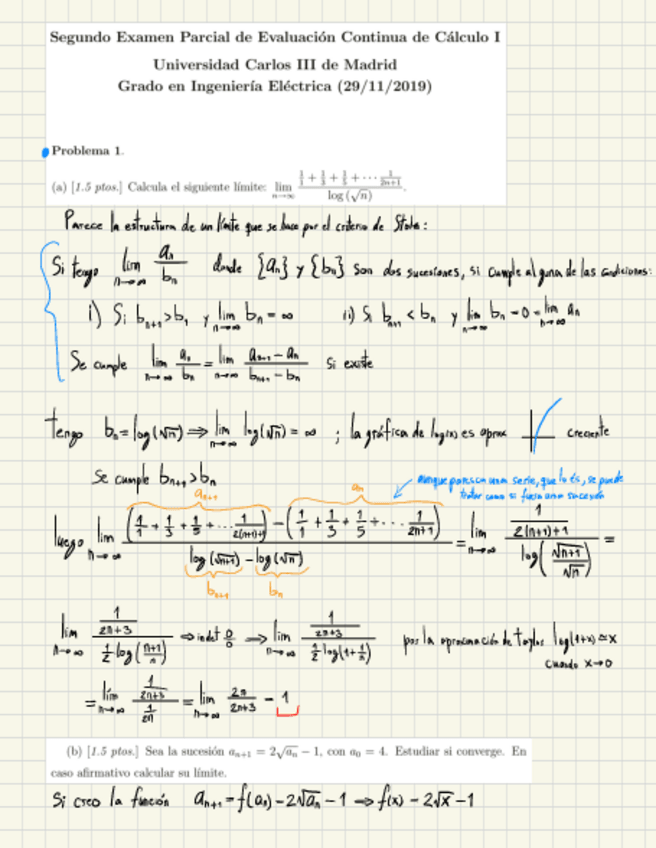 Segundo Examen Parcial de Evaluación Continua de Cálculo I
Universidad Carlos III de Madrid
Grado en Ingeniería Eléctrica (29/11/2019)
Problema 1.
(a) [1.5 ptos.] Calcula el siguiente límite: lim n→∞ (1/1 + 1/3 + 1/5 + ⋯ 1/(2n+1)) / log(√n).
Parece la estructura de un límite que se hace por el criterio de Stolz:
Si tengo lim n→∞ an/bn donde {an} y {bn} son dos sucesiones, si cumple alguna de las condiciones:
i) Si bn+1 > bn y lim n→∞ bn = ∞ ii) Si bn+1 < bn y lim n→∞ bn = 0 = lim n→∞ an
Se cumple lim n→∞ an/bn = lim n→∞ (an+1 − an)/(bn+1 − bn) si existe
tengo bn = log(√n) ⇒ lim n→∞ log(√n) = ∞ ; la gráfica de log(x) es aprox creciente
Se cumple bn+1 > bn
aunque parezca una serie, que lo es, se puede
tratar como si fuera una sucesión
an+1 an
luego lim n→∞ ((1/1 + 1/3 + 1/5 + ⋯ 1/(2(n+1)+1)) − (1/1 + 1/3 + 1/5 + ⋯ 1/(2n+1))) / (log(√n+1) − log(√n)) = lim n→∞ (1/(2(n+1)+1)) / log(√n+1/√n) =
bn+1 bn
lim n→∞ (1/(2n+3)) / (1/2 log((n+1)/n)) ⇒ indet 0/0 ⇒ lim n→∞ (1/(2n+3)) / (1/2 log(1+1/n)) por la aproximación de Taylor log(1+x) ≈ x
cuando x→0
= lim n→∞ (1/(2n+3)) / (1/2n) = lim n→∞ 2n/(2n+3) = 1
(b) [1.5 ptos.] Sea la sucesión an+1 = 2√an − 1, con a0 = 4. Estudiar si converge. En
caso afirmativo calcular su límite.
Si creo la función an+1 = f(an) = 2√an − 1 ⇒ f(x) = 2√x − 1